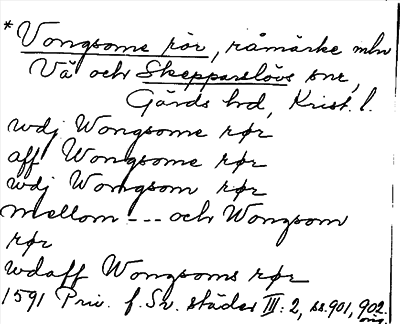 * Vongsome rör, råmärke mln
Vä och Skepparslövs snr,
Gärds hd, Krist. l.
wdj Wongsome rør
aff Wongsome rør
wdj Womgsom rør
mellom --- och Wongsom
rør
wdaff Wongsoms rør
1591 Priv. f. Sv. städer III: 2, ss. 901, 902.